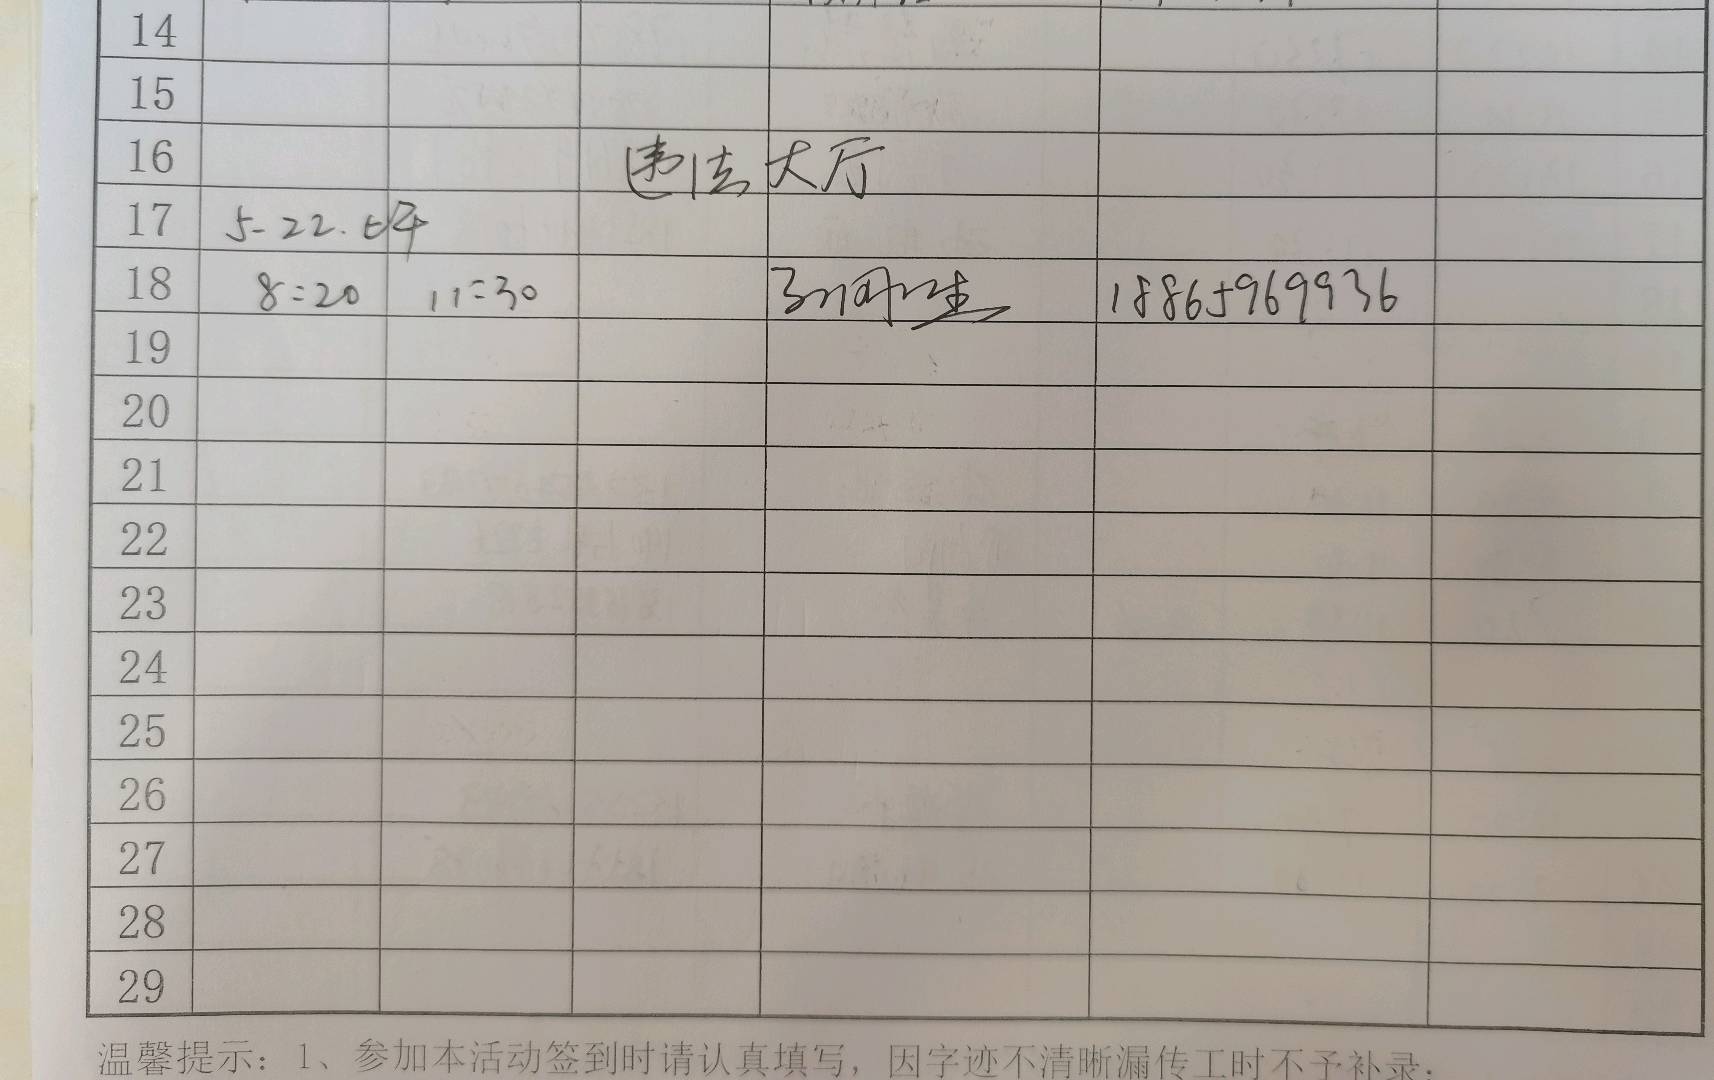 14
15
16 违法大厅
17 5-22.上午
18 8:20 11:30 18865969936
19
20
21
22
23
24
25
26
27
28
29
温馨提示：1、参加本活动签到时请认真填写，因字迹不清晰漏传工时不予补录；